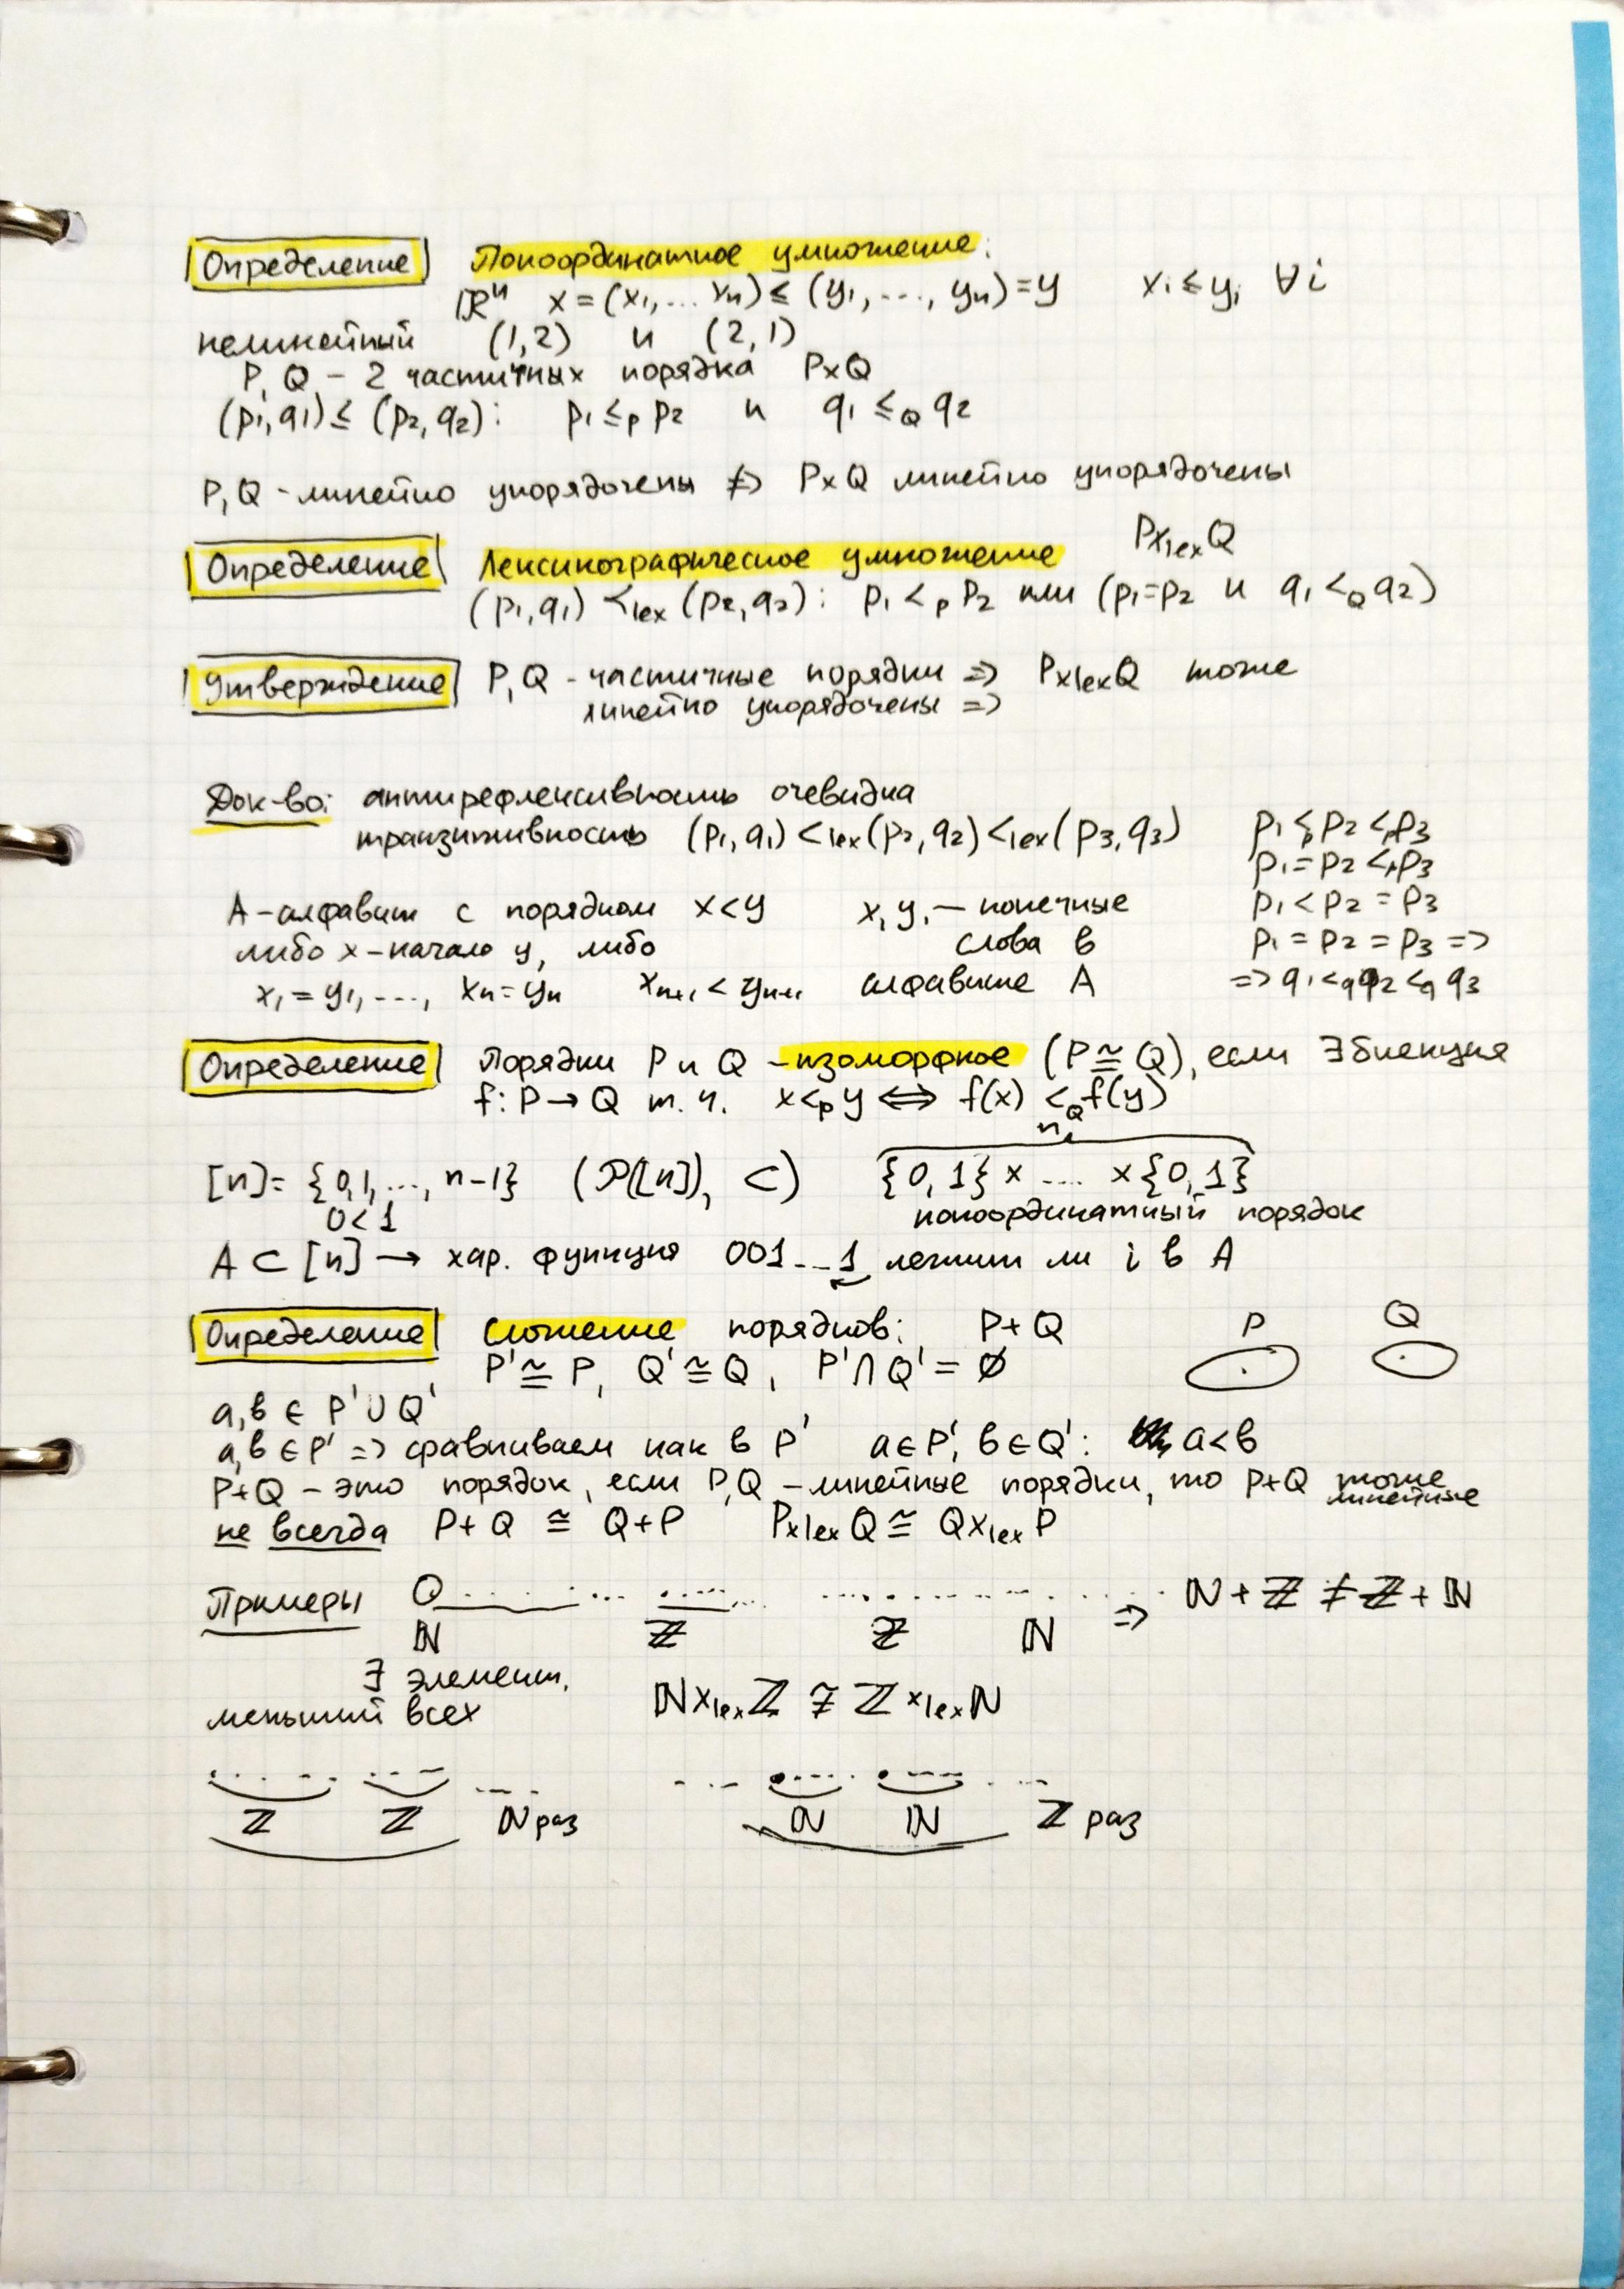 Определение Покоординатное умножение:
ℝⁿ x = (x₁, ... xₙ) ≤ (y₁, ..., yₙ) = y xᵢ ≤ yᵢ ∀i
нелинейный (1,2) и (2,1)
P, Q - 2 частичных порядка P×Q
(p₁,q₁) ≤ (p₂,q₂): p₁ ≤_P p₂ и q₁ ≤_Q q₂
P, Q - линейно упорядочены ⇏ P×Q линейно упорядочены
Определение Лексикографическое умножение P×_lex Q
(p₁,q₁) <_lex (p₂,q₂): p₁ <_P p₂ или (p₁=p₂ и q₁ <_Q q₂)
Утверждение P, Q - частичные порядки => P×_lex Q тоже
линейно упорядочены =>
Док-во: антирефлексивность очевидна
транзитивность (p₁,q₁) <_lex (p₂,q₂) <_lex (p₃,q₃) p₁ <_P p₂ <_P p₃
p₁ = p₂ <_P p₃
A - алфавит с порядком x<y x, y, — конечные p₁ < p₂ = p₃
либо x - начало y, либо слова в p₁ = p₂ = p₃ =>
x₁ = y₁, ..., xₙ = yₙ xₙ₊₁ < yₙ₊₁ алфавите A => q₁ <_q q₂ <_q q₃
Определение Порядки P и Q - изоморфное (P ≅ Q), если ∃ биекция
f: P → Q т.ч. x <_P y ⟺ f(x) <_Q f(y)
n
[n] = {0,1,..., n-1} (𝒫([n]), ⊂) {0,1} × .... × {0,1}
0<1 покоординатный порядок
A ⊂ [n] → хар. функция 001...1 лежит ли i в A
Определение Сложение порядков: P+Q P Q
P' ≅ P, Q' ≅ Q, P' ∩ Q' = ∅
a, b ∈ P' ∪ Q'
a, b ∈ P' => сравниваем как в P' a ∈ P', b ∈ Q': a < b
P+Q - это порядок, если P, Q - линейные порядки, то P+Q тоже линейные
не всегда P+Q ≅ Q+P P×_lex Q ≅ Q×_lex P
Примеры 0 ..... ... ..... ... => ℕ + ℤ ≠ ℤ + ℕ
ℕ ℤ ℤ ℕ
∃ элемент,
меньший всех ℕ×_lex ℤ ≇ ℤ×_lex ℕ
ℤ ℤ ℕ раз ℕ ℕ ℤ раз